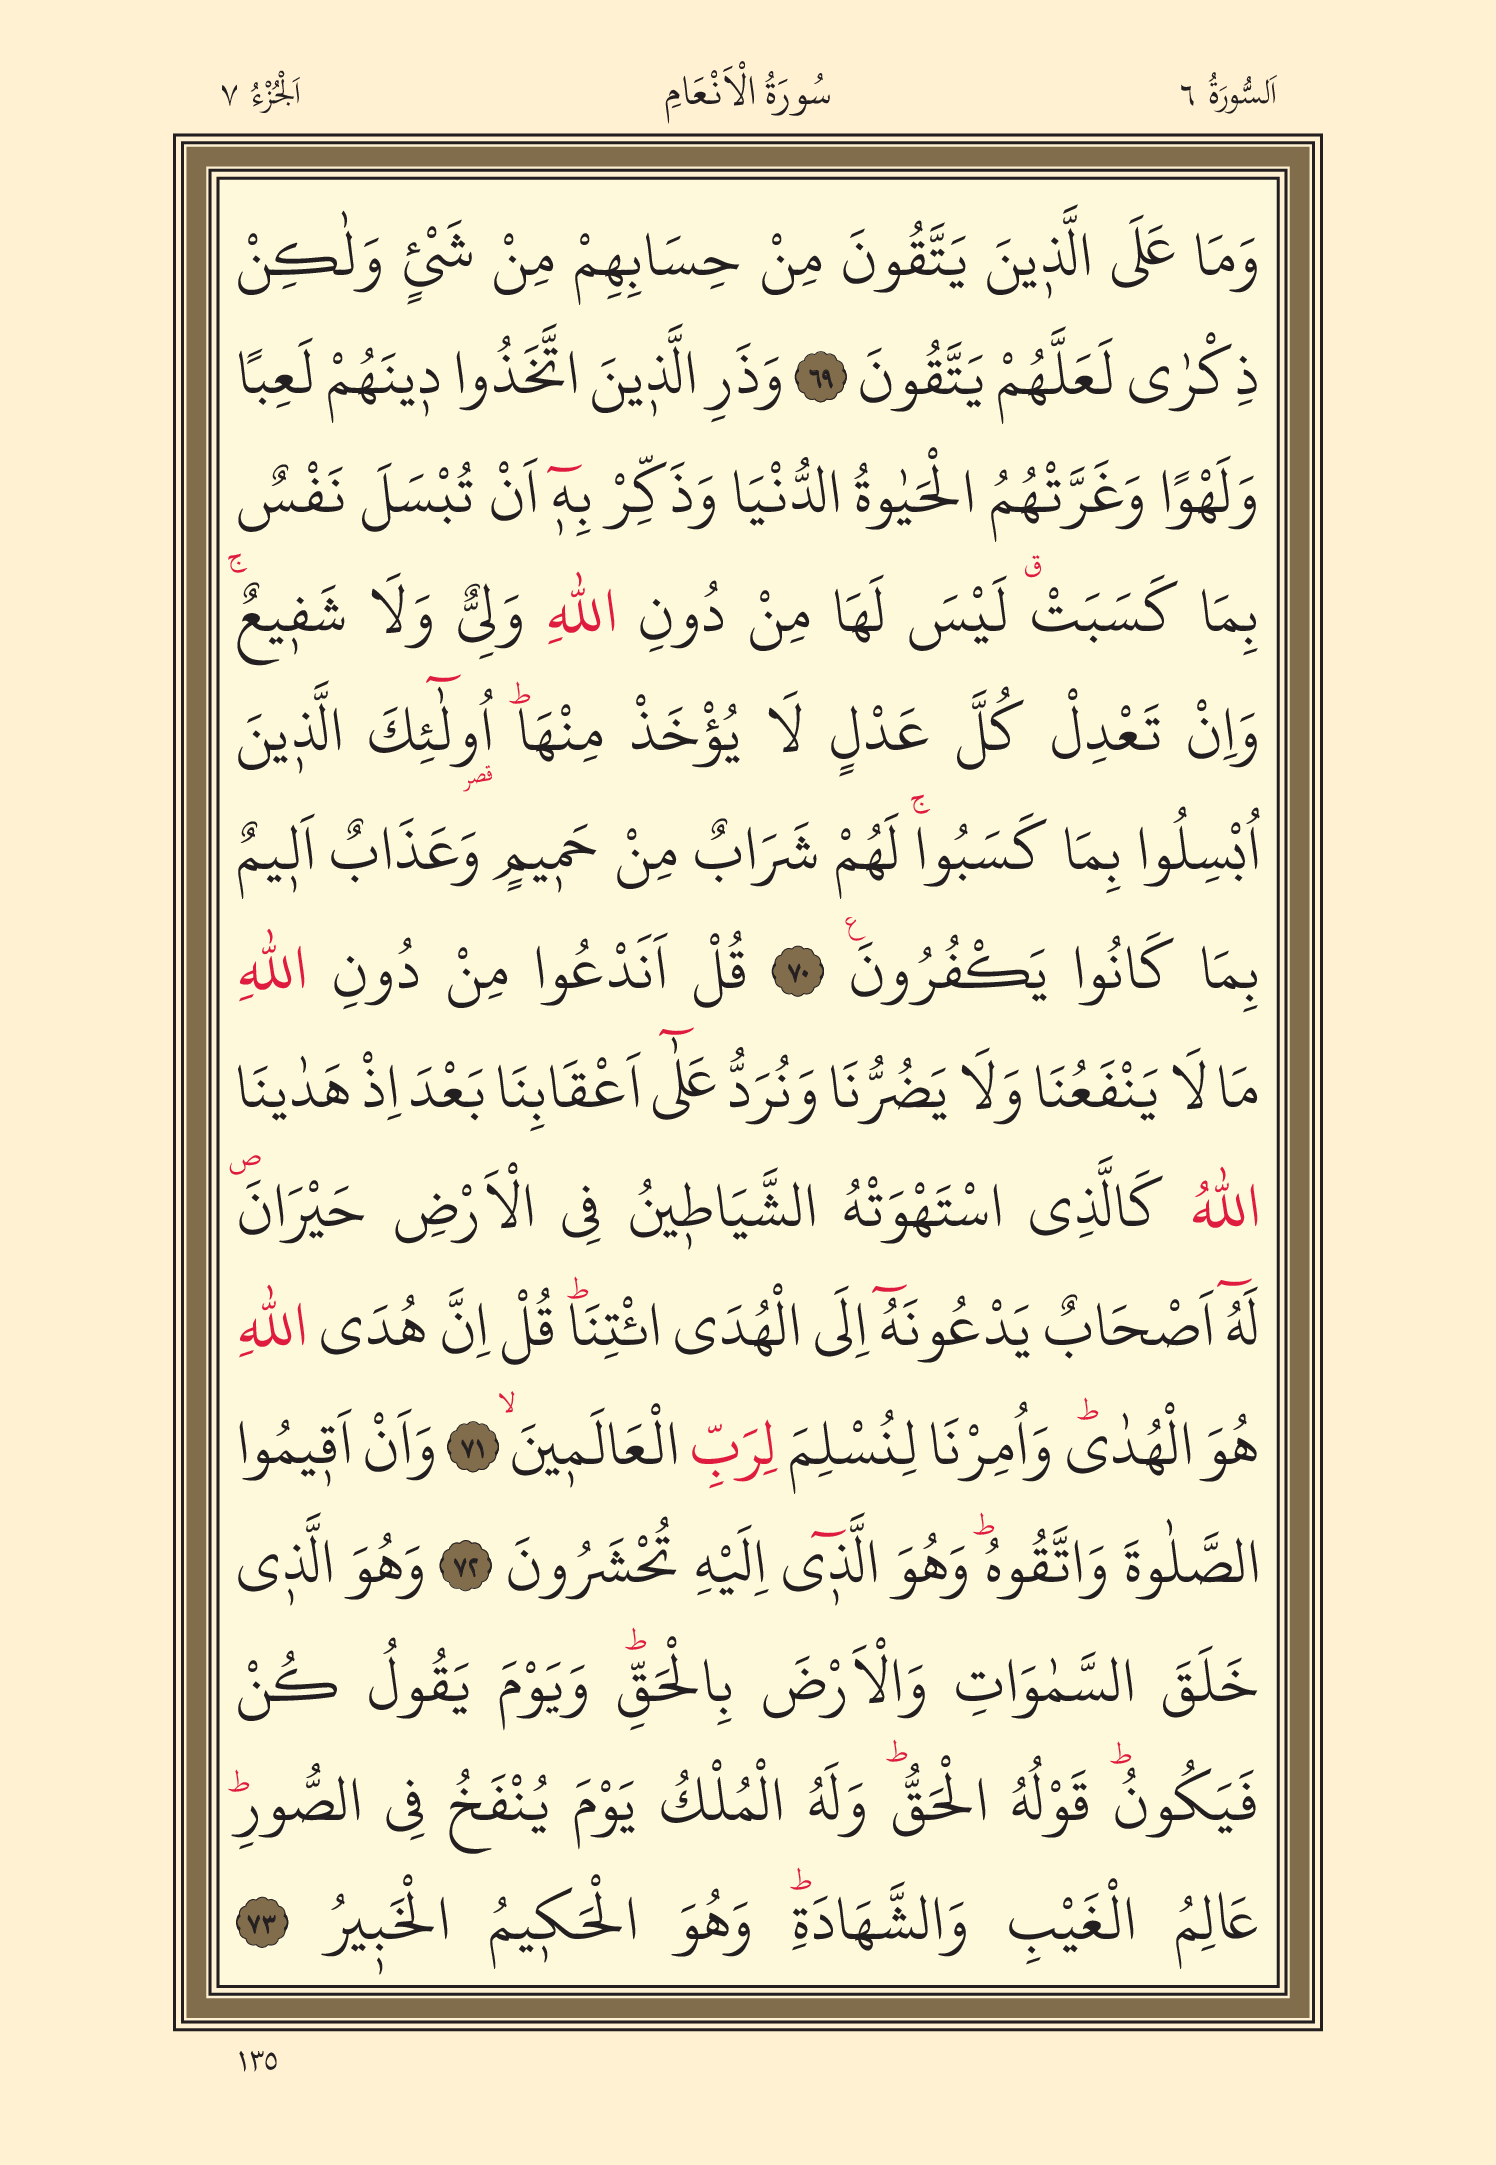 اَلسُّورَةُ ٦ سُورَةُ الْاَنْعَامِ اَلْجُزْءُ ٧
وَمَا عَلَى الَّذ۪ينَ يَتَّقُونَ مِنْ حِسَابِهِمْ مِنْ شَيْئٍ وَلٰكِنْ
ذِكْرٰى لَعَلَّهُمْ يَتَّقُونَ ٦٩ وَذَرِ الَّذ۪ينَ اتَّخَذُوا د۪ينَهُمْ لَعِبًا
وَلَهْوًا وَغَرَّتْهُمُ الْحَيٰوةُ الدُّنْيَا وَذَكِّرْ بِه۪ٓ اَنْ تُبْسَلَ نَفْسٌ
بِمَا كَسَبَتْۗ لَيْسَ لَهَا مِنْ دُونِ اللّٰهِ وَلِىٌّ وَلَا شَف۪يعٌۚ
وَاِنْ تَعْدِلْ كُلَّ عَدْلٍ لَا يُؤْخَذْ مِنْهَاۜ اُولٰٓئِكَ الَّذ۪ينَ
قصر
اُبْسِلُوا بِمَا كَسَبُواۚ لَهُمْ شَرَابٌ مِنْ حَم۪يمٍ وَعَذَابٌ اَل۪يمٌ
بِمَا كَانُوا يَكْفُرُونَ۟ ٧٠ قُلْ اَنَدْعُوا مِنْ دُونِ اللّٰهِ
مَا لَا يَنْفَعُنَا وَلَا يَضُرُّنَا وَنُرَدُّ عَلٰٓى اَعْقَابِنَا بَعْدَ اِذْ هَدٰينَا
اللّٰهُ كَالَّذِى اسْتَهْوَتْهُ الشَّيَاط۪ينُ فِى الْاَرْضِ حَيْرَانَۖ
لَهُٓ اَصْحَابٌ يَدْعُونَهُٓ اِلَى الْهُدَى ائْتِنَاۜ قُلْ اِنَّ هُدَى اللّٰهِ
هُوَ الْهُدٰىۜ وَاُمِرْنَا لِنُسْلِمَ لِرَبِّ الْعَالَم۪ينَۙ ٧١ وَاَنْ اَق۪يمُوا
الصَّلٰوةَ وَاتَّقُوهُۜ وَهُوَ الَّذ۪ٓى اِلَيْهِ تُحْشَرُونَ ٧٢ وَهُوَ الَّذ۪ى
خَلَقَ السَّمٰوَاتِ وَالْاَرْضَ بِالْحَقِّۜ وَيَوْمَ يَقُولُ كُنْ
فَيَكُونُۜ قَوْلُهُ الْحَقُّۜ وَلَهُ الْمُلْكُ يَوْمَ يُنْفَخُ فِى الصُّورِۜ
عَالِمُ الْغَيْبِ وَالشَّهَادَةِۜ وَهُوَ الْحَك۪يمُ الْخَب۪يرُ ٧٣
١٣٥